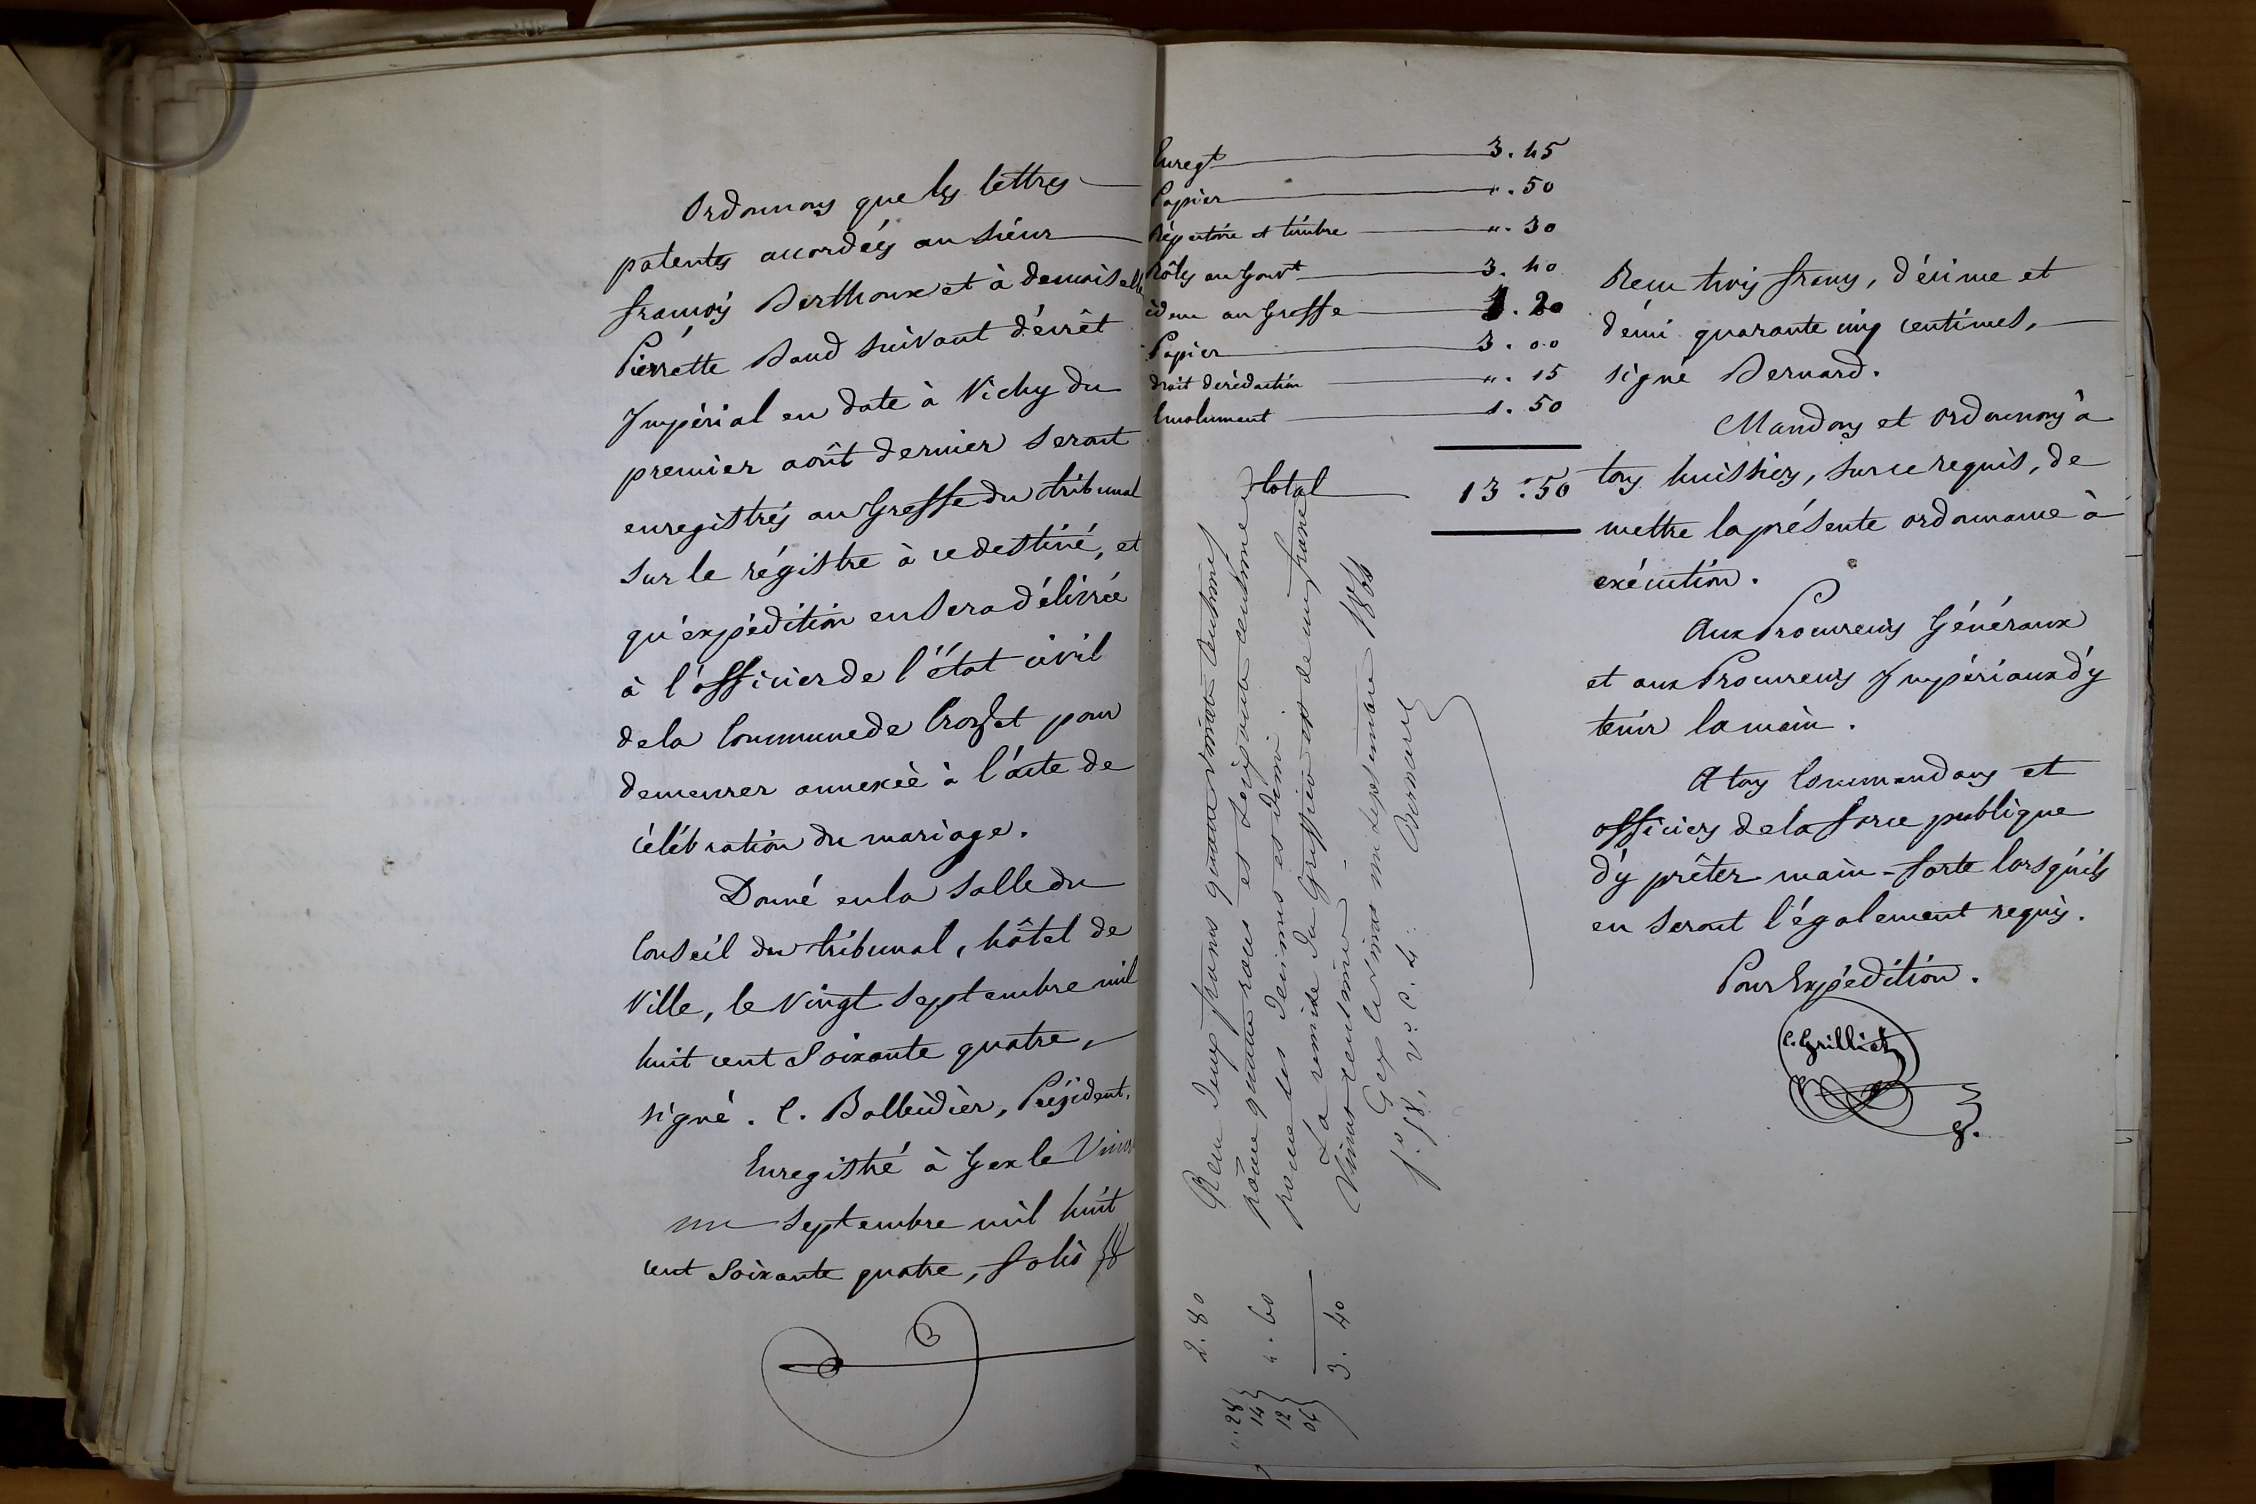 Ordonnons que les lettres
patentes accordées au sieur
françois Berthoux et à demoiselle
Pierrette Baud suivant décrêt
Impérial en date à Vichy du
premier août dernier seront
enregistrés au Greffe du tribunal
sur le régistre à ce destiné, et
qu'expédition en sera délivrée
à l'officier de l'état civil
de la Commune de Crozet pour
demeurer annexée à l'acte de
célébration du mariage.
Donné en la salle du
Conseil du tribunal, hôtel de
Ville, le vingt septembre mil
huit cent soixante quatre,
signé. C. Balleidier, Président.
Enregistré à Gex le Vingt
un septembre mil huit
cent soixante quatre, folio 58
Enregt 3.45
Papier ". 50
Répertoire et timbre ". 30
Rôles au Gouvt 3. 40
idem au Greffe 1. 20
Papier 3. 00
droit de rédaction ". 15
Emolument 1. 50
total 13. 50
Reçu deux francs quatre vingt centimes
pour quatre roles et soixante centimes
pour les décimes et demi.
La remise du Greffier est de un franc
vingt centimes.
Gex le vingt un septembre 1864
fo. 58, vo. c. 4. Bernard
2. 80
". 60
3. 40
". 28
14
12
06
Reçu trois francs, décime et
démi quarante cinq centimes,
signé Bernard.
Mandons et ordonnons à
tous huissiers, sur ce requis, de
mettre la présente ordonnance à
exécution.
Aux Procureurs Généraux
et aux Procureurs Impériaux d'y
tenir la main.
A tous Commandans et
officiers de la force publique
d'y prêter main-forte lorsqu'ils
en seront légalement requis.
Pour Expédition.
C. Grilliet